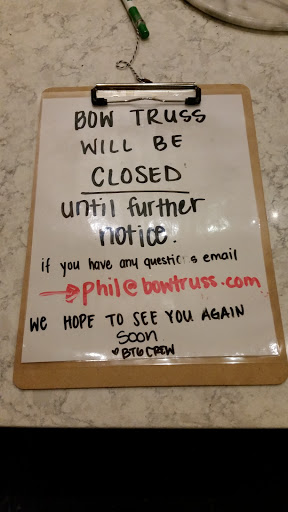 BOW TRUSS
WILL BE
CLOSED
until further
notice.
if you have any questions email
→phil@bowtruss.com
WE HOPE TO SEE YOU AGAIN
SOON
♥BT6 CREW